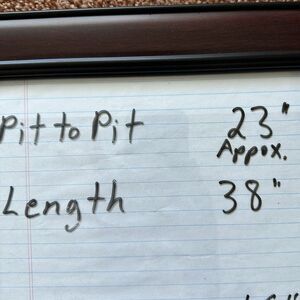 Pit to Pit 23"
Appox.
Length 38"